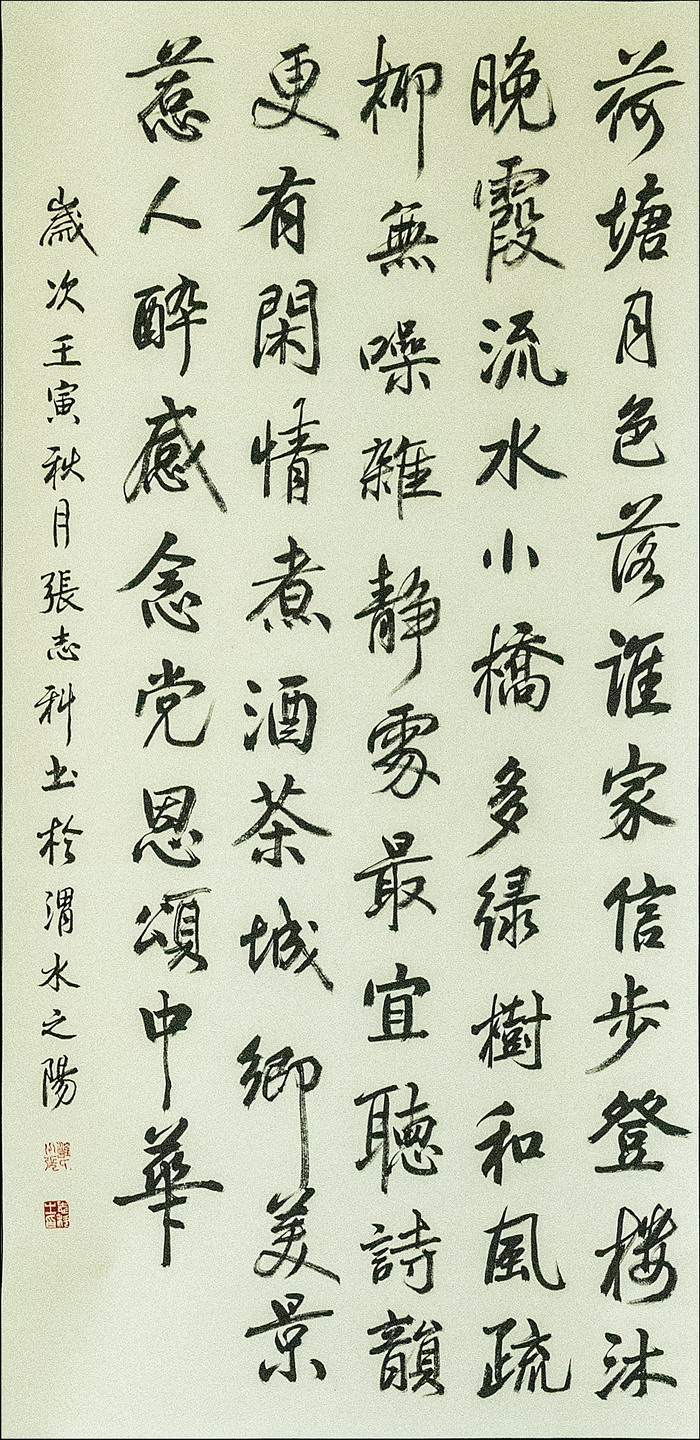 荷塘月色落誰家信步登楼沐
晚霞流水小橋多绿樹和風疏
柳無噪雜静處最宜聽詩韻
更有閑情煮酒茶城鄉美景
惹人醉感念党恩頌中華
歲次壬寅秋月張志科书於渭水之陽